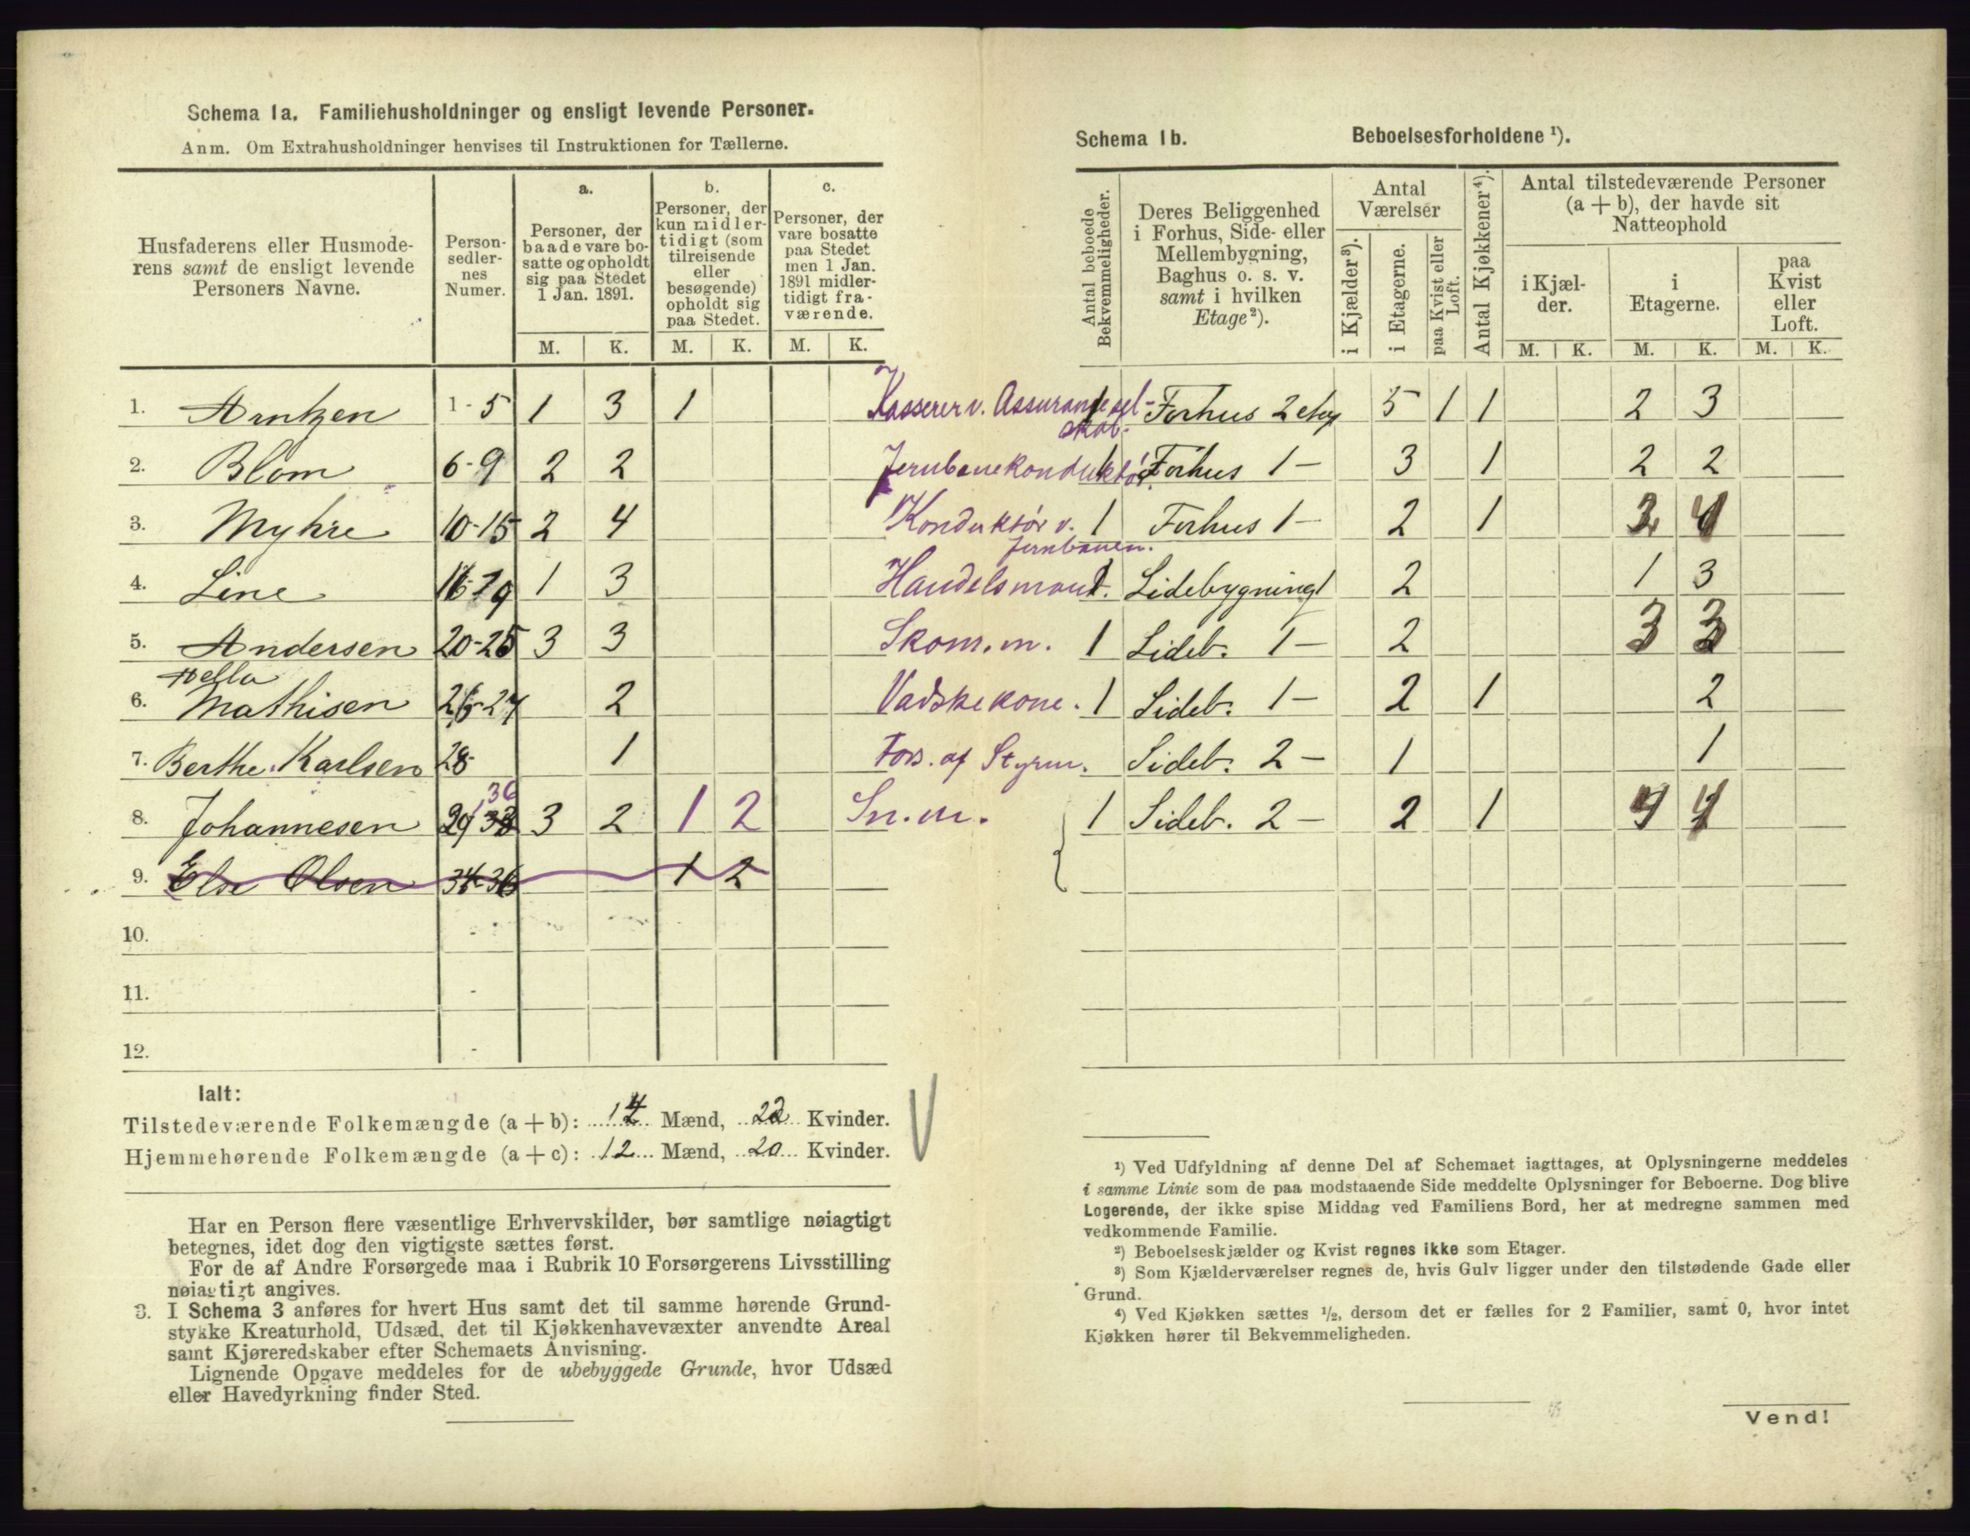 Schema 1a. Familiehusholdninger og ensligt levende Personer.
Anm. Om Extrahusholdninger henvises til Instruktionen for Tællerne.
Husfaderens eller Husmode-
rens samt de ensligt levende
Personers Navne.
Person-
sedler-
nes
Numer.
a.
Personer, der
baade vare bo-
satte og opholdt
sig paa Stedet
1 Jan. 1891.
b.
Personer, der
kun midler-
tidigt (som
tilreisende
eller
besøgende)
opholdt sig
paa Stedet.
c.
Personer, der
vare bosatte
paa Stedet
men 1 Jan.
1891 midler-
tidigt fra-
værende.
M. K. M. K. M. K.
1. Arntzen 1-5 1 3 1
2. Blom 6-9 2 2
3. Myhre 10-15 2 4
4. Line 16-19 1 3
5. Andersen 20-25 3 3
6. Mathisen 26-27 2
7. Berthe Karlsen 28 1
36
8. Johannesen 29 33 3 2 1 2
9. Else Olsen 34-36 1 2
10.
11.
12.
Ialt:
Tilstedeværende Folkemængde (a + b): 14 Mænd, 22 Kvinder.
Hjemmehørende Folkemængde (a + c): 12 Mænd, 20 Kvinder.
Har en Person flere væsentlige Erhvervskilder, bør samtlige nøiagtigt
betegnes, idet dog den vigtigste sættes først.
For de af Andre Forsørgede maa i Rubrik 10 Forsørgerens Livsstilling
nøiagtigt angives.
3. I Schema 3 anføres for hvert Hus samt det til samme hørende Grund-
stykke Kreaturhold, Udsæd, det til Kjøkkenhavevæxter anvendte Areal
samt Kjøreredskaber efter Schemaets Anvisning.
Lignende Opgave meddeles for de ubebyggede Grunde, hvor Udsæd
eller Havedyrkning finder Sted.
Schema 1b. Beboelsesforholdene ¹).
Antal beboede
Bekvemmeligheder.
Deres Beliggenhed
i Forhus, Side- eller
Mellembygning,
Baghus o. s. v.
samt i hvilken
Etage²).
Antal
Værelser
i Kjælder³).
i Etagerne.
paa Kvist eller
Loft.
Antal Kjøkkener⁴).
Antal tilstedeværende Personer
(a + b), der havde sit
Natteophold
i Kjæl-
der.
i
Etagerne.
paa
Kvist
eller
Loft.
M. K. M. K. M. K.
Kasserer v. Assuransesel-
skab. 1 Forhus 2 etag 5 1 1 2 3
Jernbanekonduktør 1 Forhus 1 - 3 1 2 2
Konduktør v. 1 Forhus 1 - 2 1 2 4
Jernbanen.
Handelsmand. 1 Sidebygning 1 2 1 3
Skom. m. 1 Sideb. 1 - 2 3 3
Vadskekone. 1 Sideb. 1 - 2 1 2
Fors. af Styrm. Sideb. 2 - 1 1
Sn. m. 1 Sideb. 2 - 2 1 4 4
¹) Ved Udfyldning af denne Del af Schemaet iagttages, at Oplysningerne meddeles
i samme Linie som de paa modstaaende Side meddelte Oplysninger for Beboerne. Dog blive
Logerende, der ikke spise Middag ved Familiens Bord, her at medregne sammen med
vedkommende Familie.
²) Beboelseskjælder og Kvist regnes ikke som Etager.
³) Som Kjælderværelser regnes de, hvis Gulv ligger under den tilstødende Gade eller
Grund.
⁴) Ved Kjøkken sættes ½, dersom det er fælles for 2 Familier, samt 0, hvor intet
Kjøkken hører til Bekvemmeligheden.
Vend!